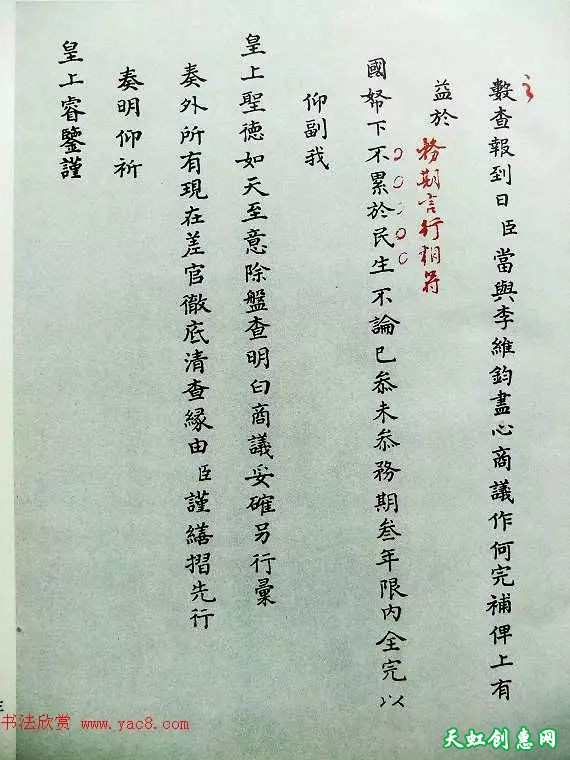 數查報到日臣當與李維鈞盡心商議作何完補俾上有
益於
務期言行相符
國帑下不累於民生不論已叅未叅務期叁年限內全完以
仰副我
皇上聖德如天至意除盤查明白商議妥確另行彙
奏外所有現在差官徹底清查緣由臣謹繕摺先行
奏明仰祈
皇上睿鑒謹
书法欣赏 www.yac8.com
天虹创惠网